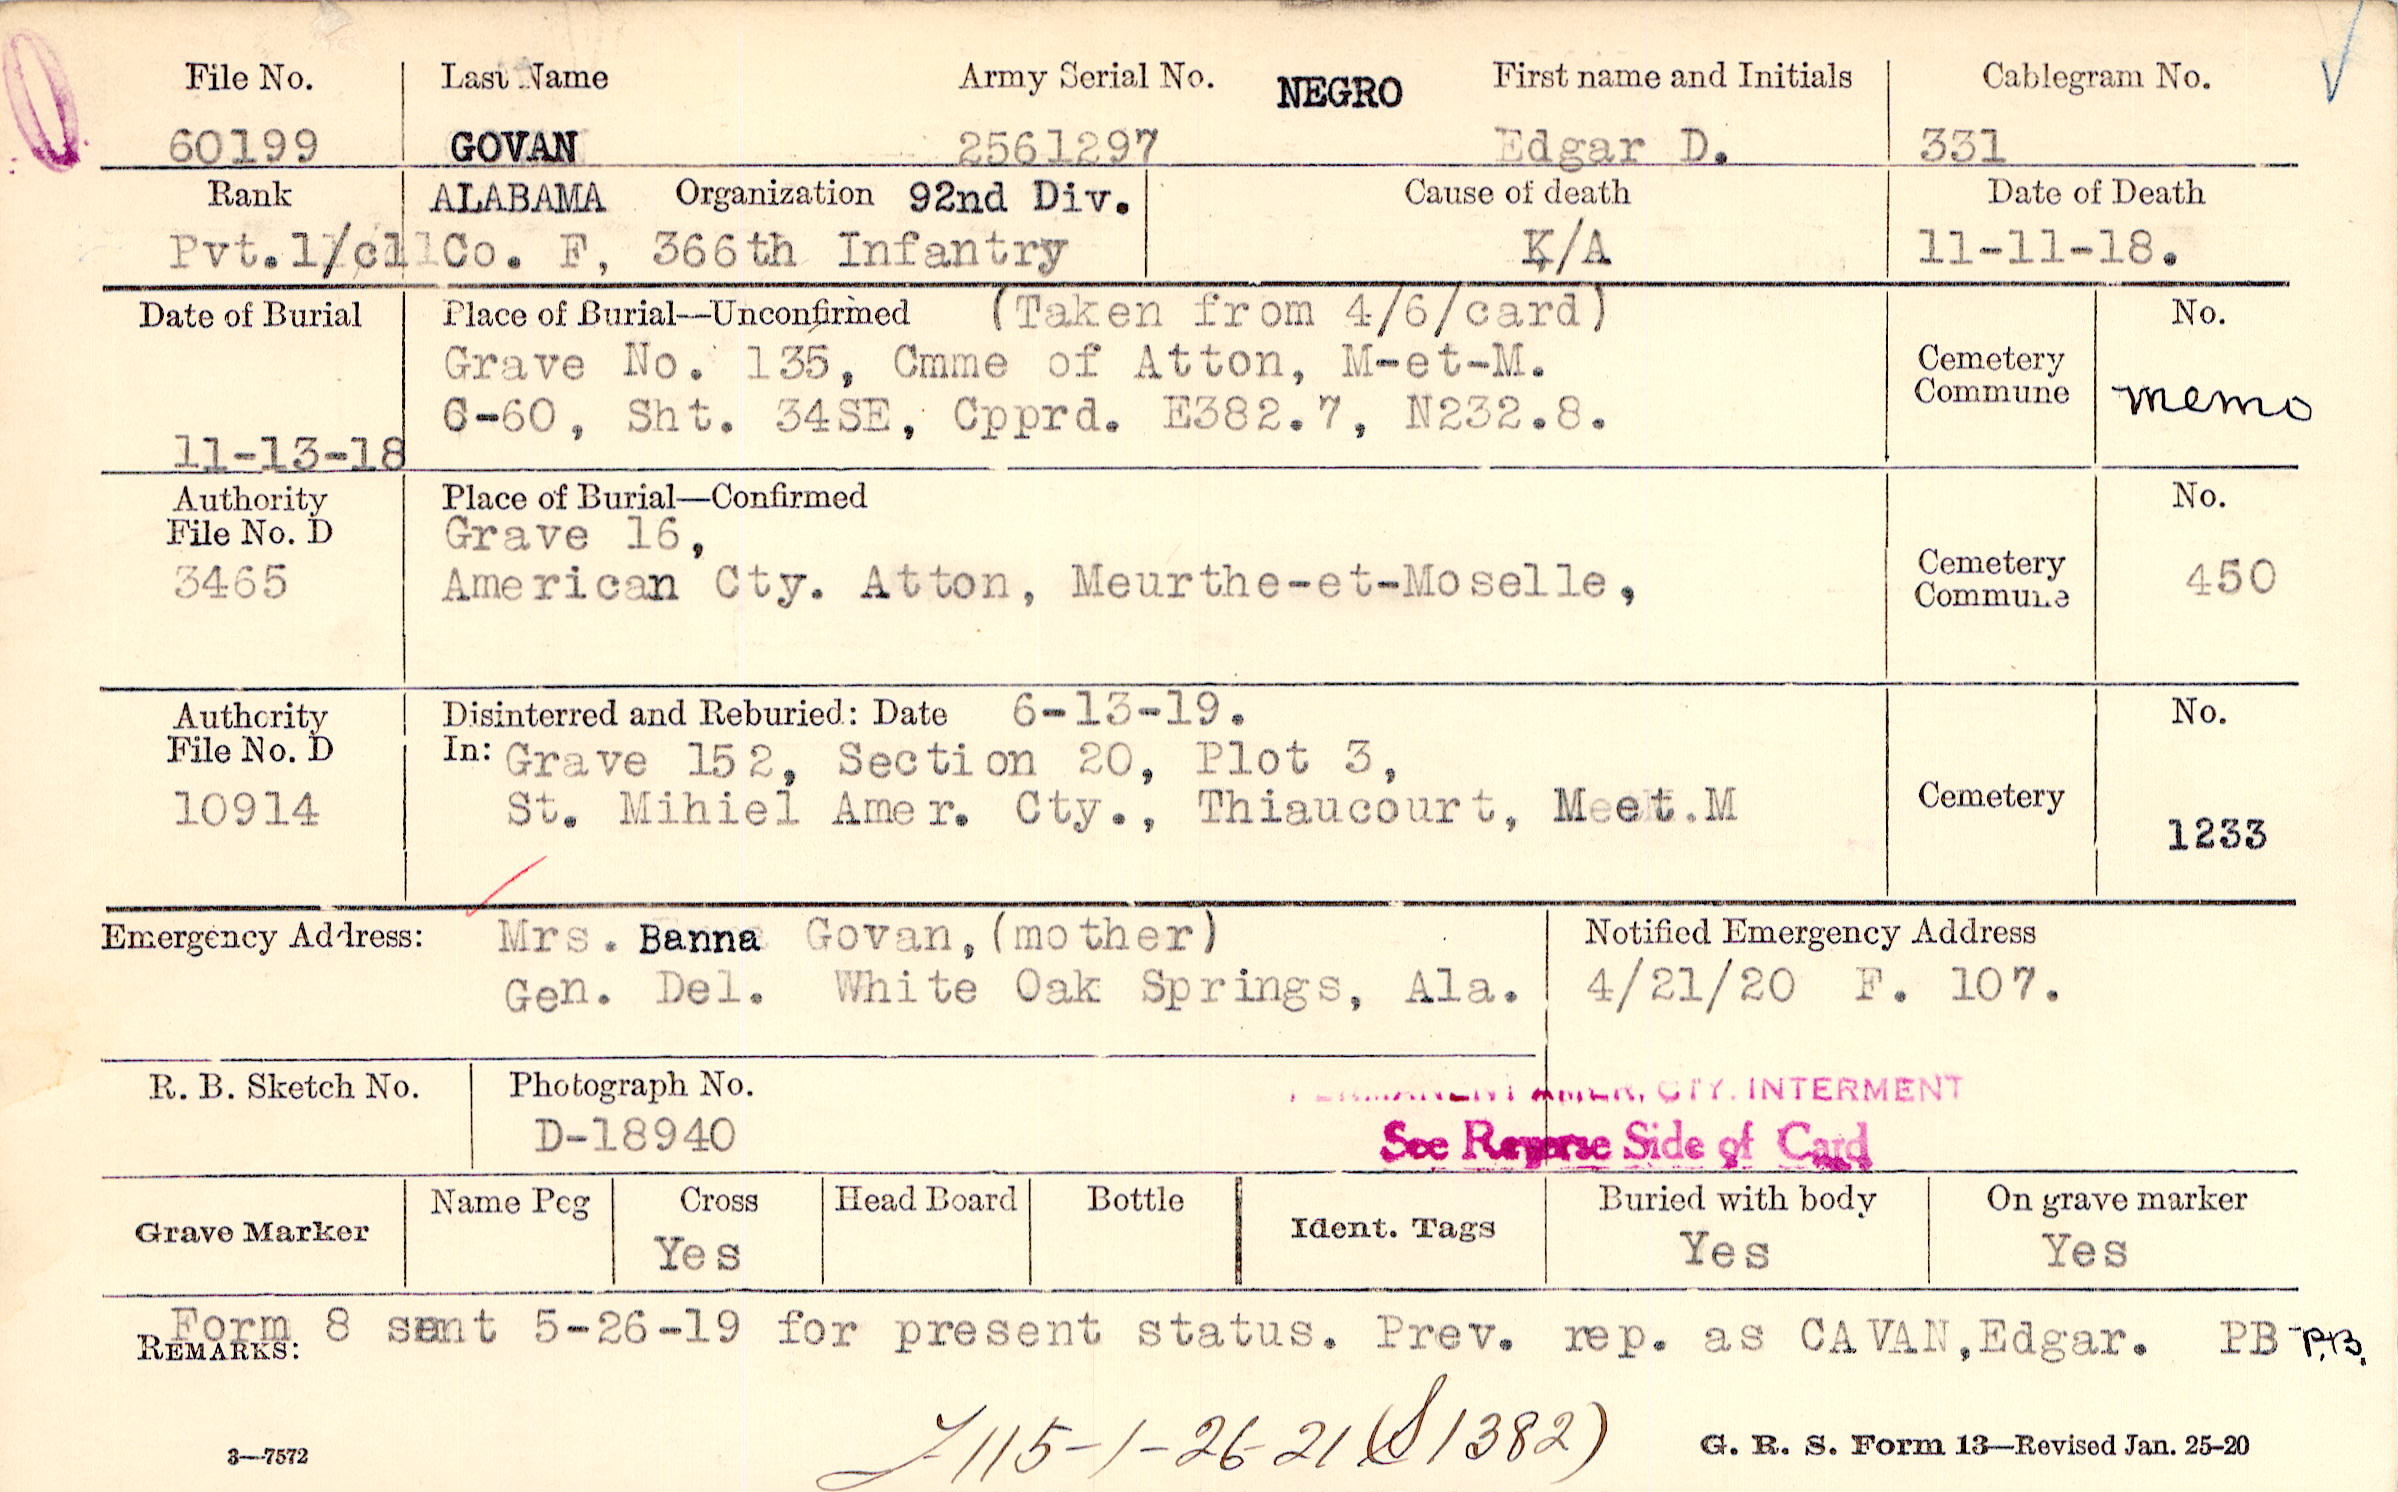 File No. Last Name Army Serial No. NEGRO First name and Initials Cablegram No.
60199 GOVAN 2561297 Edgar D. 331
Rank ALABAMA Organization 92nd Div. Cause of death Date of Death
Pvt.1/cl Co. F, 366th Infantry K/A 11-11-18.
Date of Burial Place of Burial—Unconfirmed (Taken from 4/6/card) No.
Grave No. 135, Cmme of Atton, M-et-M. Cemetery
Commune memo
C-60, Sht. 34SE, Cpprd. E382.7, N232.8.
11-13-18
Authority Place of Burial—Confirmed No.
File No. D Grave 16,
3465 American Cty. Atton, Meurthe-et-Moselle, Cemetery 450
Commune
Authority Disinterred and Reburied: Date 6-13-19. No.
File No. D In: Grave 152, Section 20, Plot 3,
10914 St. Mihiel Amer. Cty., Thiaucourt, Meet.M Cemetery
1233
Emergency Address: Mrs. Banna Govan,(mother) Notified Emergency Address
Gen. Del. White Oak Springs, Ala. 4/21/20 F. 107.
R. B. Sketch No. Photograph No. PERMANENT AMER. CTY. INTERMENT
D-18940 See Reverse Side of Card
Grave Marker Name Peg Cross Head Board Bottle Ident. Tags Buried with body On grave marker
Yes Yes Yes
Form 8 sent 5-26-19 for present status. Prev. rep. as CAVAN,Edgar. PB-P.B.
REMARKS:
115-1-26-21 (S1382)
3—7572 G. R. S. Form 13—Revised Jan. 25-20